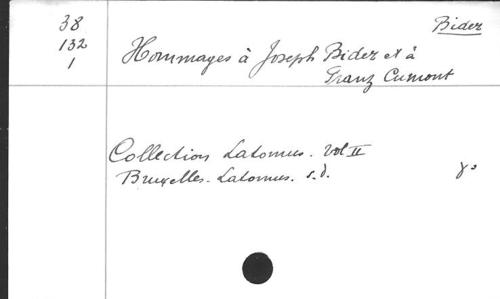 38
132
1
Bidez
Hommages à Joseph Bidez et à
Franz Cumont
Collection Latomus. vol II
Bruxelles. Latomus. s.d.